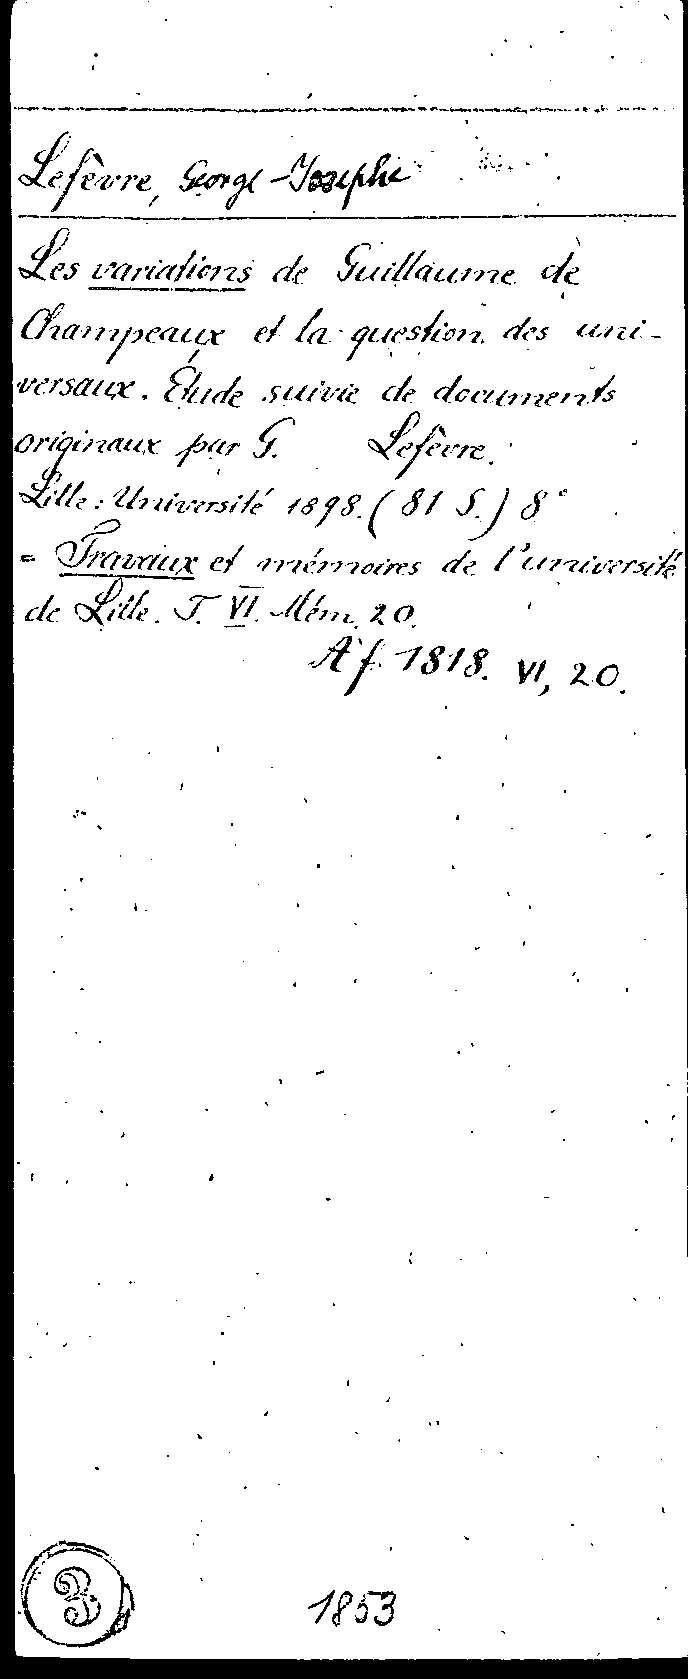 Lefèvre, George-Josephe
Les variations de Guillaume de
Champeaux et la question des uni-
versaux. Étude suivie de documents
originaux par G. Lefèvre.
Lille: Université 1898. (81 S.) 8°
= Travaux et mémoires de l'université
de Lille. T. VI. Mém. 20.
Af 1818. VI, 20.
3
1853